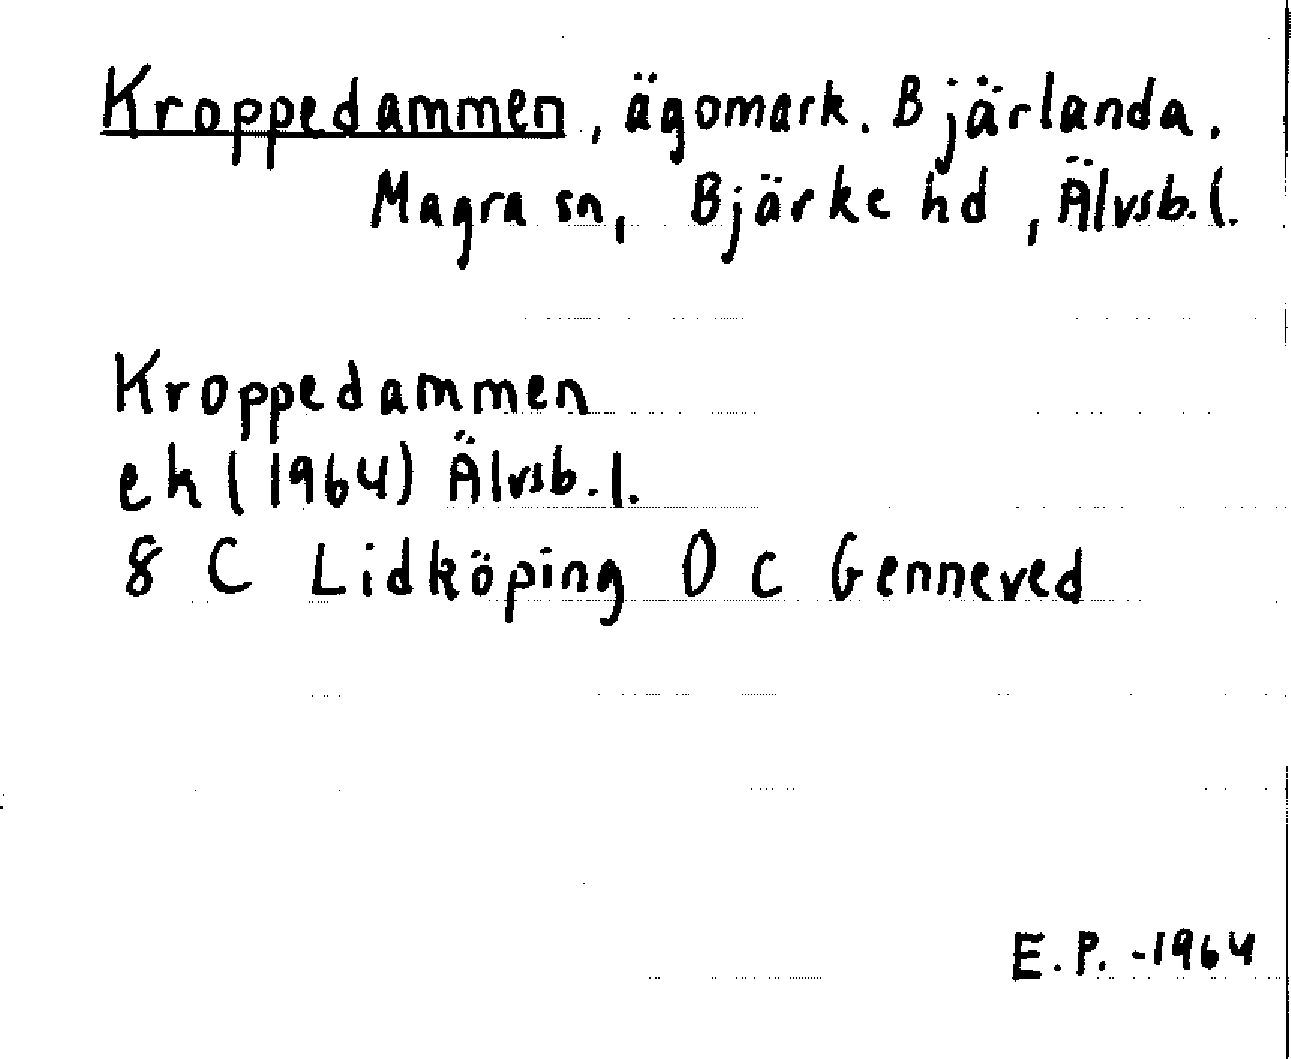 Kroppedammen, ägomark. Bjärlanda.
Magra sn, Bjärke hd, Älvsb.l.
Kroppedammen
ek (1964) Älvsb.l.
8 C Lidköping 0 c Genneved
E.P. -1964